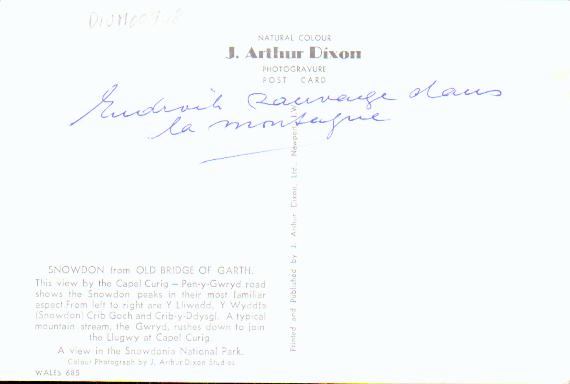 NATURAL COLOUR
J. Arthur Dixon
PHOTOGRAVURE
POST CARD
Endroit sauvage dans
la montagne
Printed and Published by J. Arthur Dixon, Ltd., Newport, I.W.
SNOWDON from OLD BRIDGE OF GARTH.
This view by the Capel Curig — Pen-y-Gwryd road
shows the Snowdon peaks in their most familiar
aspect.From left to right are Y Lliwedd, Y Wyddfa
(Snowdon) Crib Goch and Crib-y-Ddysgl. A typical
mountain stream, the Gwryd, rushes down to join
the Llugwy at Capel Curig.
A view in the Snowdonia National Park.
Colour Photograph by J. Arthur Dixon Studios
WALES 685